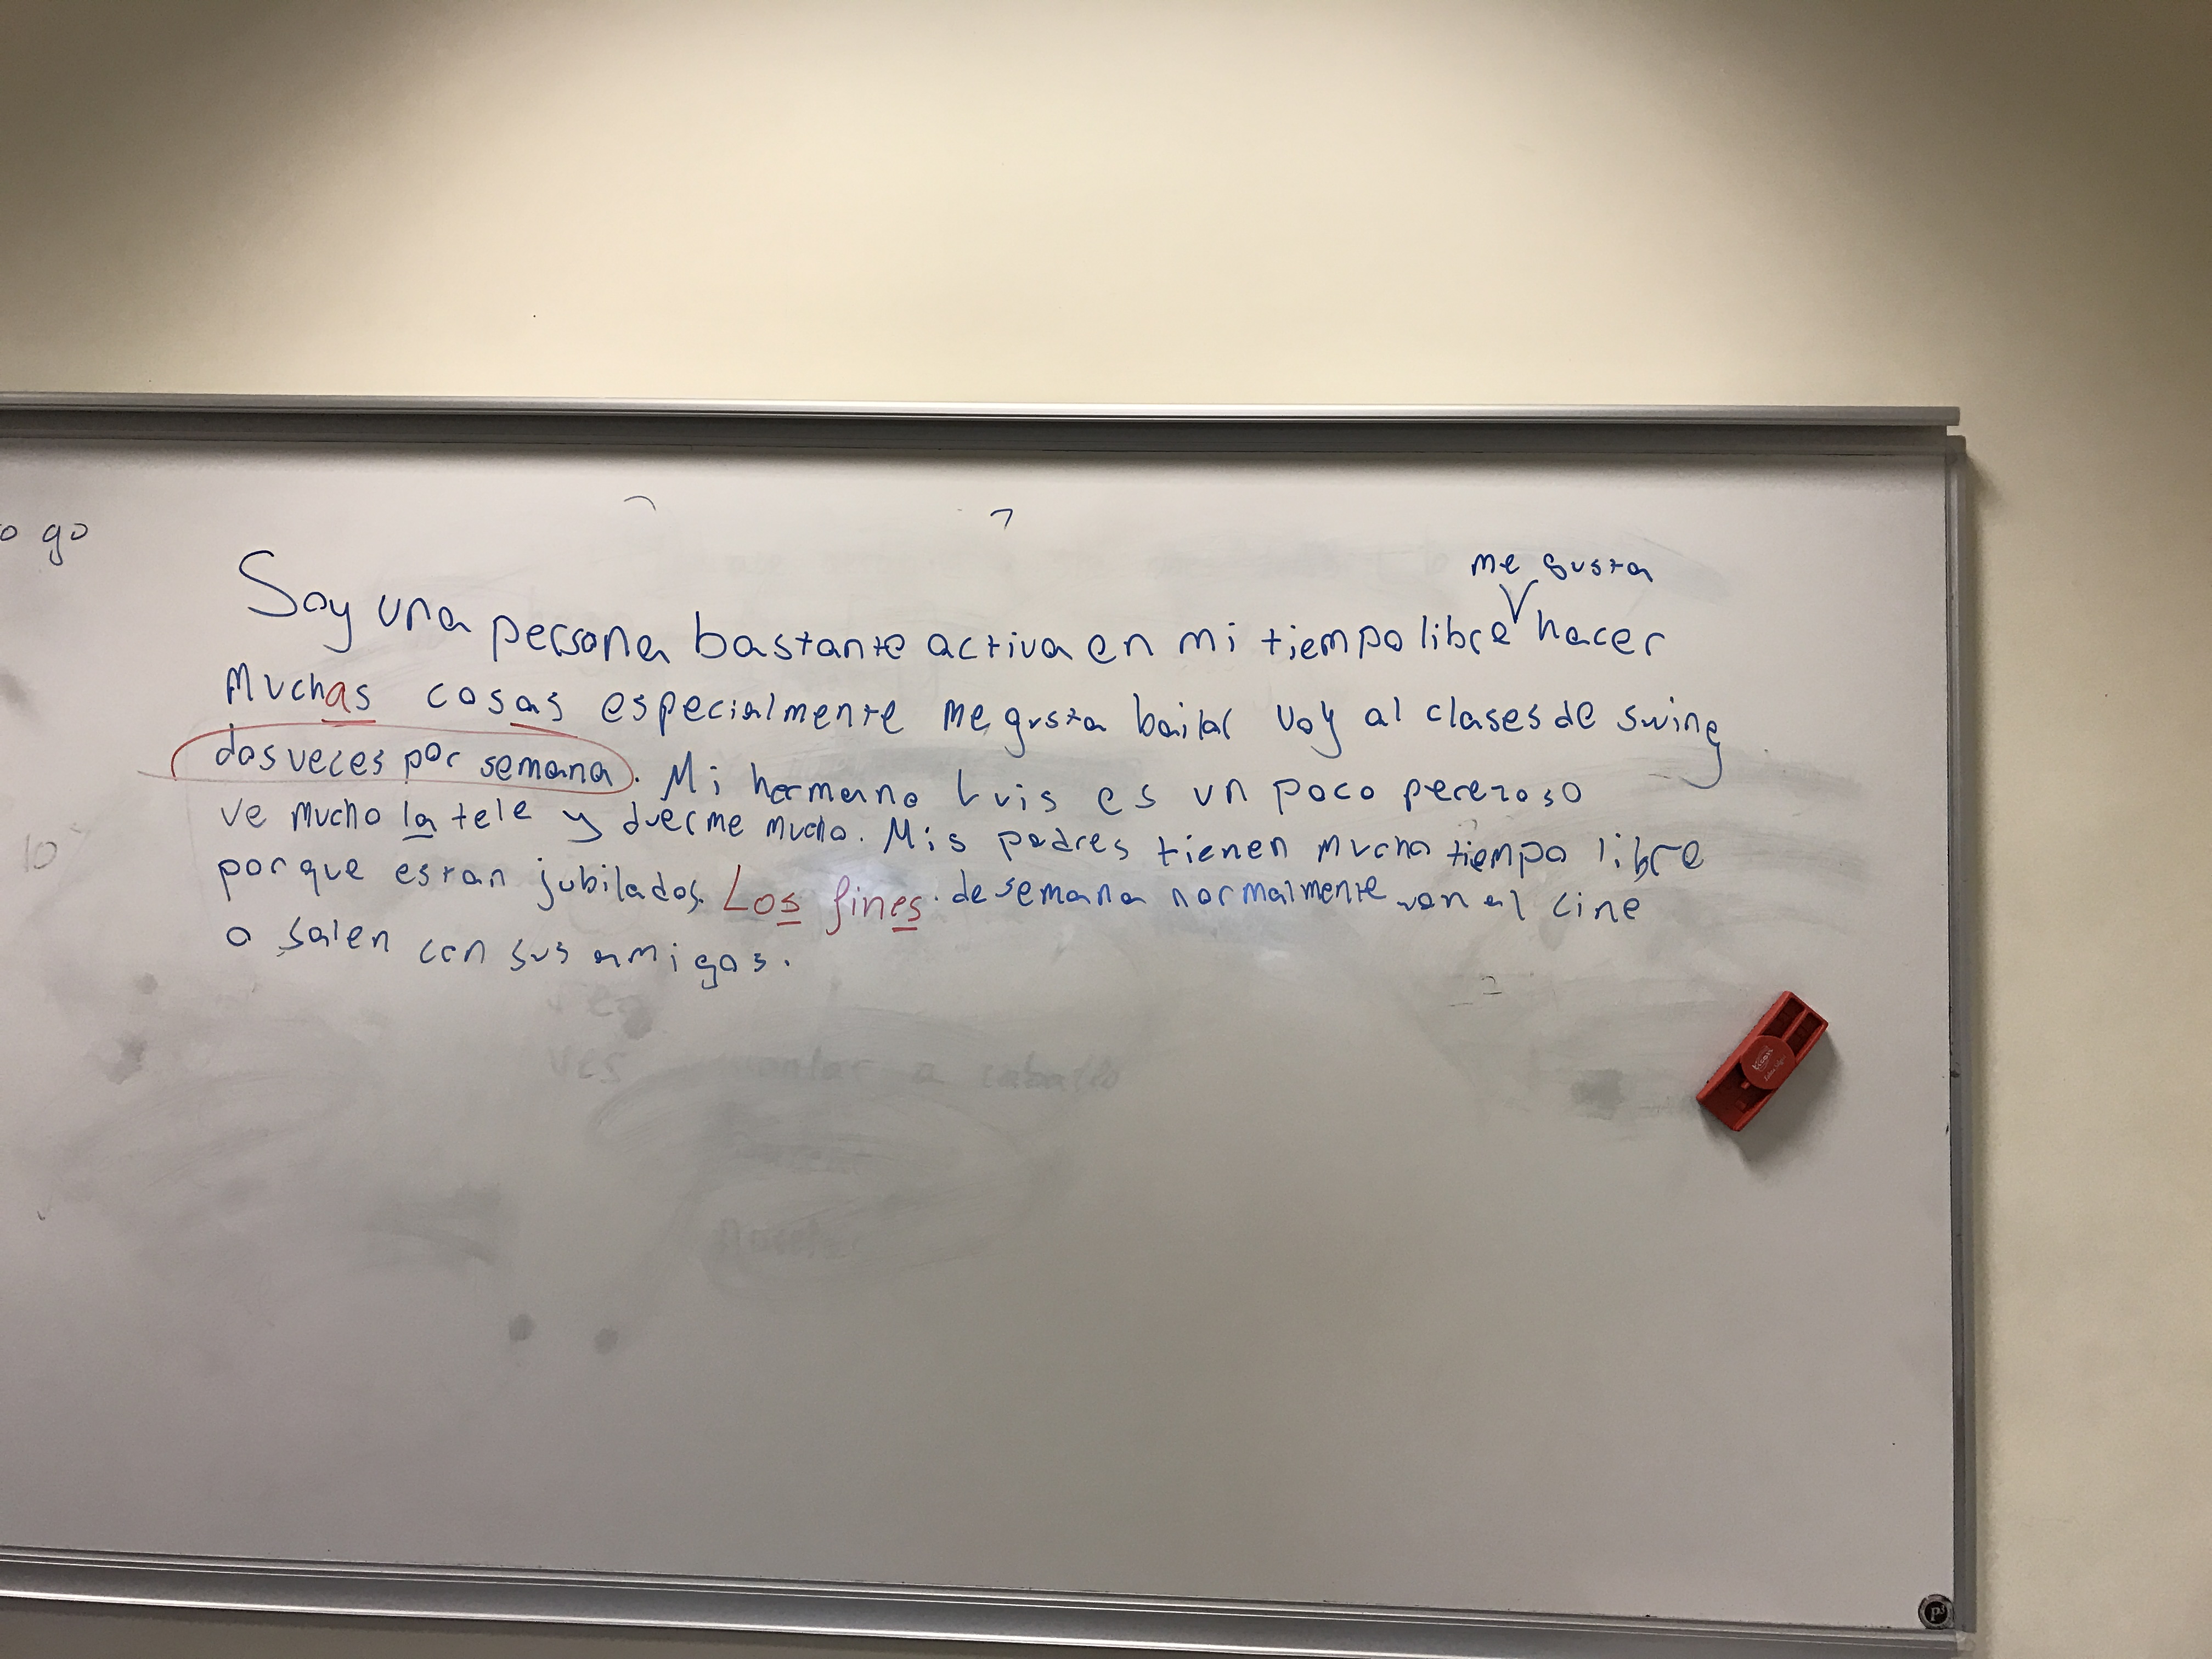 go
me gusta
Soy una persona bastante activa en mi tiempo libre hacer
Muchas cosas especialmente me gusta bailar voy al clases de swing
dos veces por semana. Mi hermano Luis es un poco perezoso
ve mucho la tele y duerme mucho. Mis padres tienen mucho tiempo libre
10
porque estan jubilados. Los fines de semana normalmente van al cine
o salen con sus amigos.
ves montar a caballo
p³